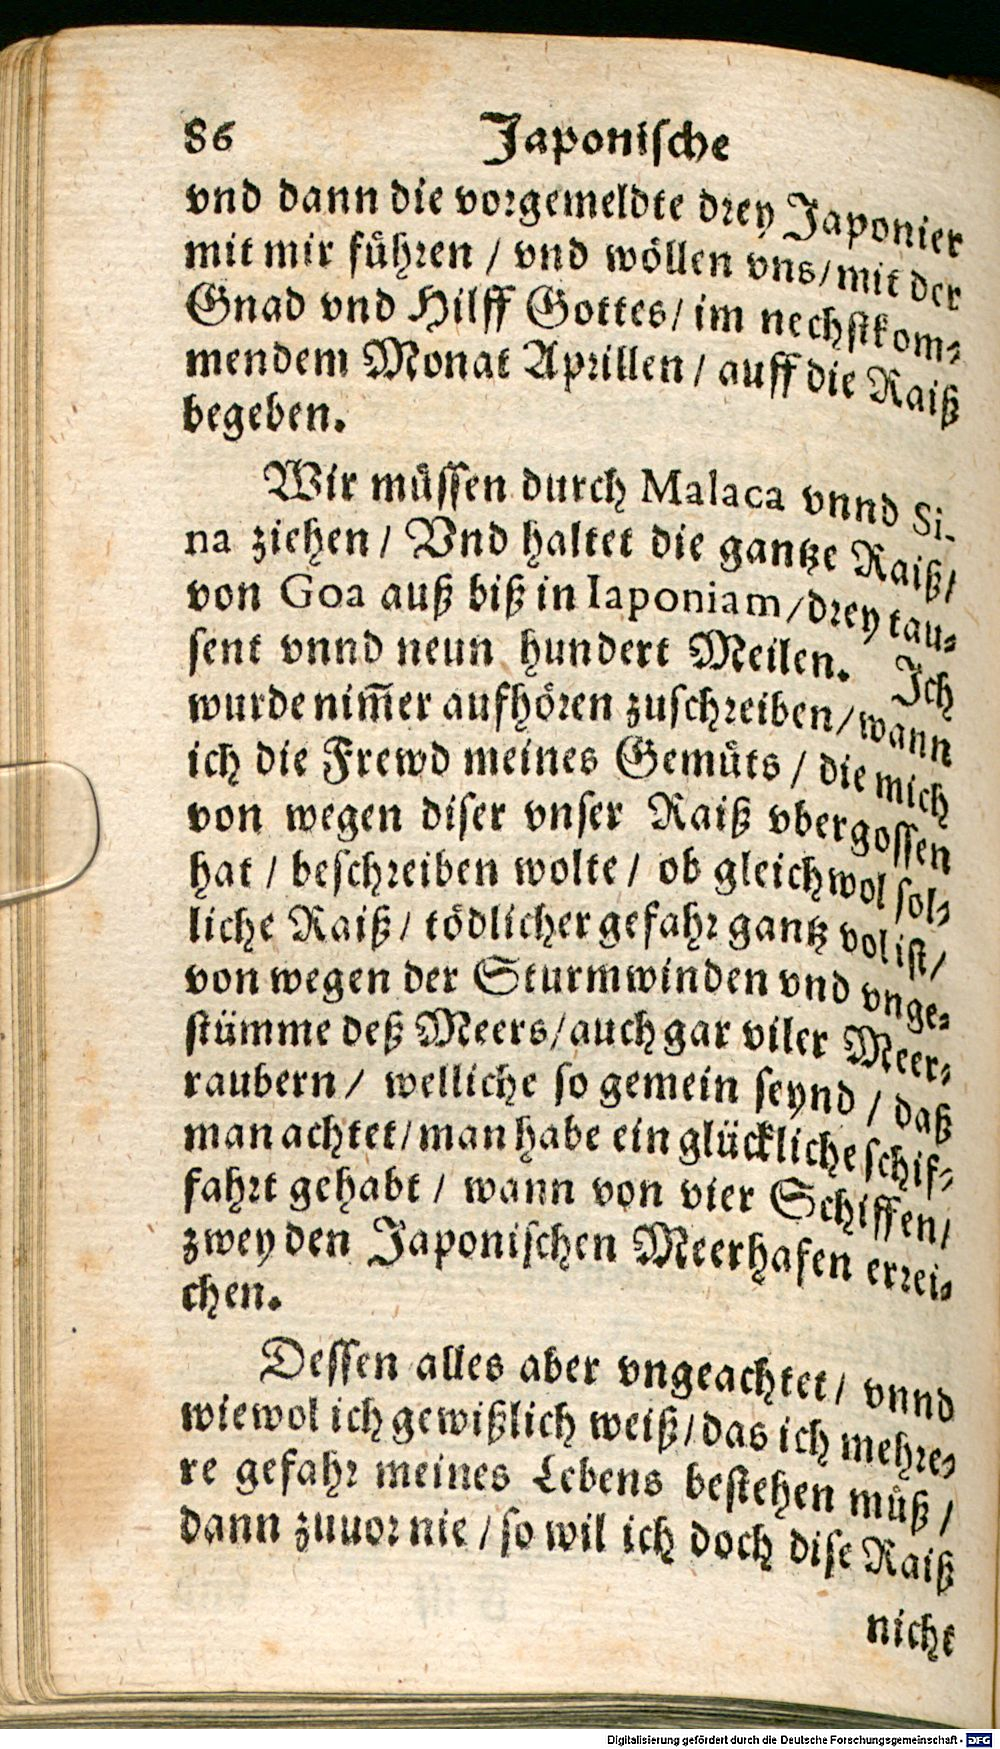 86 Japonische
vnd dann die vorgemeldte drey Japonier
mit mir fůhren / vnd wöllen vns / mit der
Gnad vnd Hilff Gottes / im nechstkom⸗
mendem Monat Aprillen / auff die Raiß
begeben.
Wir můssen durch Malaca vnnd Si-
na ziehen / Vnd haltet die gantze Raiß /
von Goa auß biß in Iaponiam / drey tau⸗
sent vnnd neun hundert Meilen. Ich
wurde nim̃er aufhören zuschreiben / wann
ich die Frewd meines Gemůts / die mich
von wegen diser vnser Raiß vbergossen
hat / beschreiben wolte / ob gleichwol sol⸗
liche Raiß / tödlicher gefahr gantz vol ist /
von wegen der Sturmwinden vnd vnge⸗
stümme deß Meers / auch gar viler Meer⸗
raubern / welliche so gemein seynd / daß
man achtet / man habe ein glückliche schif⸗
fahrt gehabt / wann von vier Schiffen /
zwey den Japonischen Meerhafen errei⸗
chen.
Dessen alles aber vngeachtet / vnnd
wiewol ich gewißlich weiß / das ich mehre⸗
re gefahr meines Lebens bestehen můß /
dann zuuor nie / so wil ich doch dise Raiß
nicht
Digitalisierung gefördert durch die Deutsche Forschungsgemeinschaft - DFG